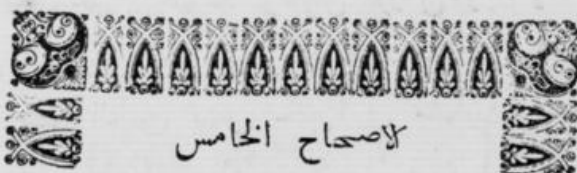 الاصحاح الخامس